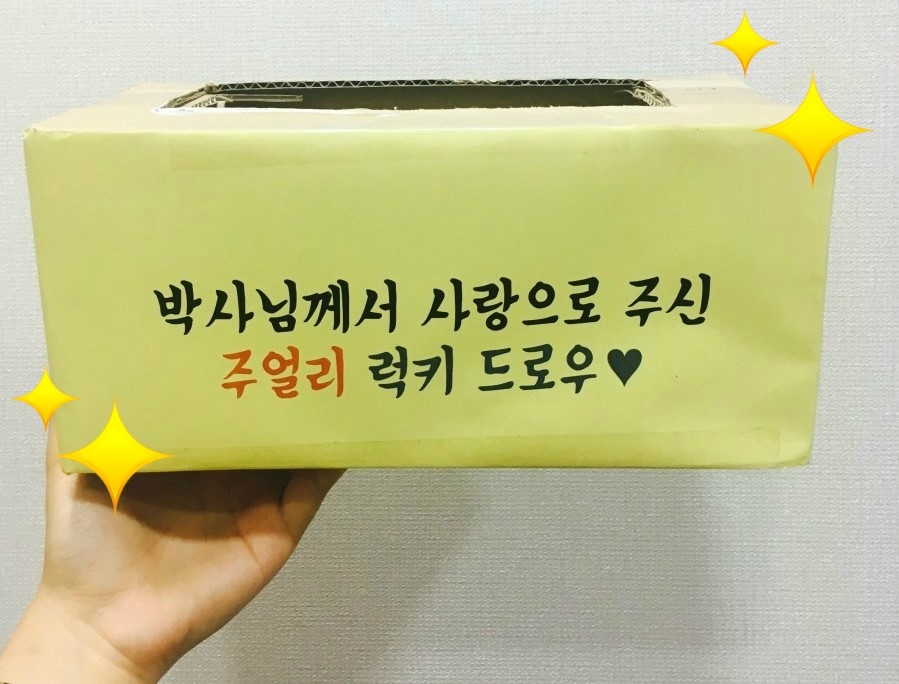 박사님께서 사랑으로 주신
주얼리 럭키 드로우♥